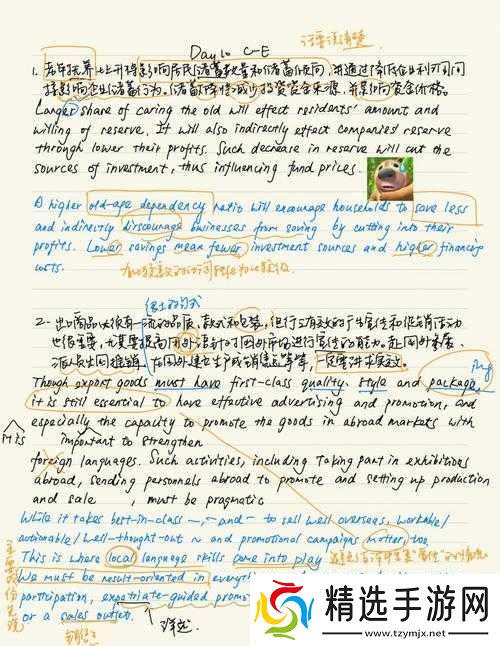 Day 10 C-E
话要说清楚
1. 老年抚养比上升将影响居民储蓄数量和储蓄倾向，并通过降低企业利润间
接影响企业储蓄行为。储蓄下降将减少投资资金来源，并影响资金价格。
Larger share of caring the old will effect residents' amount and
willing of reserve. It will also indirectly effect companies' reserve
through lower their profits. Such decrease in reserve will cut the
sources of investment, thus influencing fund prices.
A higher old-age dependency ratio will encourage households to save less
and indirectly discourage businesses from saving by cutting into their
profits. Lower savings mean fewer investment sources and higher financing
costs.
2. 出口商品必须有一流的品质、款式和包装，但行之有效的广告宣传和促销活动
也很重要，尤其要提高用外语针对国外市场进行宣传的能力。赴国外参展、
派人员出国推销、在国外建立生产或销售点等等，一定要讲求实效。
Though export goods must have first-class quality, style and package,
ing
it is still essential to have effective advertising and promotion, and
especially the capacity to promote the goods in abroad markets with
M is
important to strengthen
foreign languages. Such activities, including taking part in exhibitions
abroad, sending personnels abroad to promote and setting up production
and sale , must be pragmatic
While it takes best-in-class —, — and — to sell well overseas, workable/
actionable/ well-thought-out ~ and promotional campaigns matter too.
This is where local language skills come into play.
We must be result-oriented in every
participation, expatriate-guided promo
or a sales outlet.
精选手游网
www.tzymjx.net